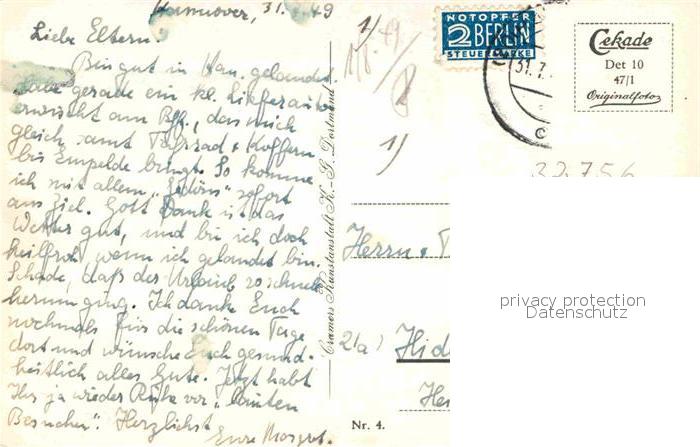 Hannover, 31. 49
Liebe Eltern!
Bin gut in Han. gelandet
habe gerade ein kl. Lieferauto
erwischt am Bhf., das mich
gleich samt Fahrrad + Koffern
bis Empelde bringt. So komme
ich mit allem „Gedöns" sofort
ans Ziel. Gott Dank ist das
Wetter gut, und bin ich doch
heilfroh, wenn ich gelandet bin.
Schade, daß der Urlaub so schnell
herum ging. Ich danke Euch
nochmals für die schönen Tage
dort und wünsche Euch gesund-
heitlich alles Gute. Jetzt habt
Ihr ja wieder Ruhe vor „lauten
Besuchen". Herzlichst
Eure Margret.
Cramers Kunstanstalt K.-G. Dortmund
1/
1/
NOTOPFER
2 BERLIN
STEUERMARKE
31.7.
Cekade
Det 10
47/1
Originalfoto
32756
Herrn +
21a)
Nr. 4.
privacy protection
Datenschutz